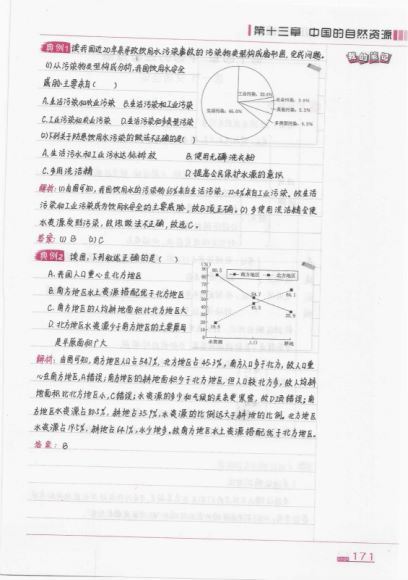 第十三章 中国的自然资源
我的笔记
典例1 读我国近20年来导致饮用水污染事故的污染物类型构成扇形图,完成问题。
(1)从污染物类型构成分析,我国饮用水安全
威胁主要来自( )
A.生活污染和农业污染 B.生活污染和工业污染
C.工业污染和农业污染 D.生活污染和多类型污染
工业污染,
生活污染,
多类型污染,
(2)下列关于防患饮用水污染的做法不正确的是( )
A.生活污水和工业污水达标排放 B.使用无磷洗衣粉
C.多用洗洁精 D.提高公民保护水源的意识
解析:(1)由图可知,我国饮用水的污染物65%来自生活污染,22.4%来自工业污染,故生活
污染和工业污染成为饮用水安全的主要威胁,故B项正确。(2)多使用洗洁精会使
水资源受到污染,故该做法不正确,故选C。
答案:(1)B (2)C
典例2 读图,下列叙述正确的是( )
A.我国人口重心在北方地区
B.南方地区水土资源搭配优于北方地区
C.南方地区的人均耕地面积比北方地区大
D.北方地区水资源少于南方地区的主要原因
是平原面积广大
(%)
南方地区 北方地区
80.5
54.7
64.1
45.3
35.9
19.5
水资源 人口 耕地
解析:由图可知,南方地区人口占54.7%,北方地区占45.3%,南方人口多于北方,故人口重
心在南方地区,A错误;南方地区的耕地面积少于北方地区,但人口较北方多,故人均耕
地面积比北方地区小,C错误;水资源的多少和气候的关系更紧密,故D项错误;南
方地区水资源占80.5%,耕地占35.9%,水资源的比例远大于耕地的比例。北方地区
水资源占19.5%,耕地占64.1%,水少地多。故南方地区水土资源搭配优于北方地区。
答案:B
171